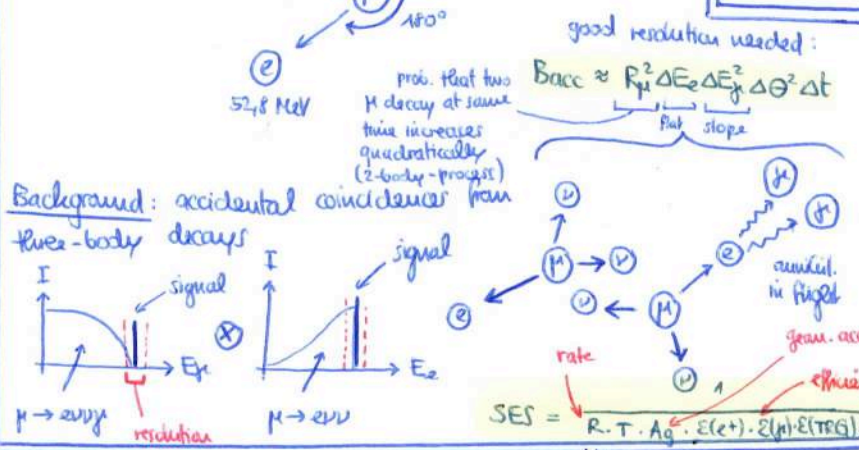 180°
e
52,8 MeV
good resolution needed:
Bacc ≈ R_μ² ΔE_e ΔE_γ² Δθ² Δt
flat slope
prob. that two
μ decay at same
time increases
quadratically
(2-body-process)
Background: accidental coincidences from
three-body decays
I
signal
E_γ
μ → eννγ
resolution
⊗
I
signal
E_e
μ → eνν
ν
μ → ν
e
ν ← μ
ν
e
γ
γ
annihil.
in flight
rate
geom. acc
SES = 1 / R · T · Ag · ε(e+) · ε(γ) · ε(TRG)